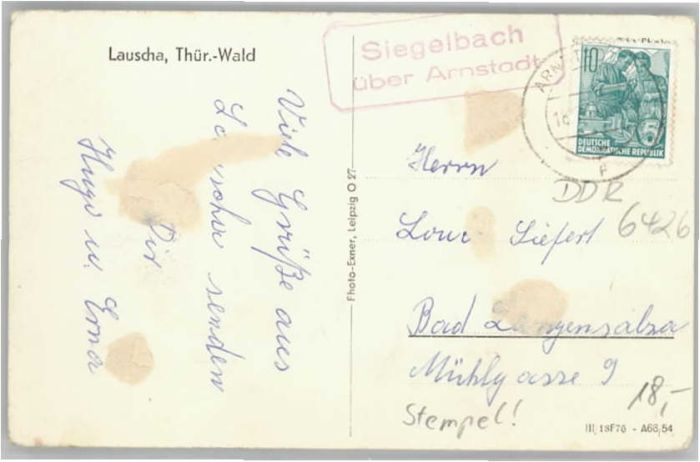 Lauscha, Thür.-Wald
Viele Grüße aus
Lauscha senden
Dir
Hugo u. Erna
Photo-Exner, Leipzig O 27
Siegelbach
über Arnstadt
10
DEUTSCHE
DEMOKRATISCHE REPUBLIK
Herrn
DDR
6426
Siefert
Bad Langensalza
Mühlgasse 9
18,-
Stempel!
III 18F76 - A68/54